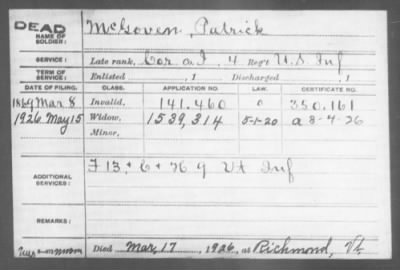 DEAD McGoven, Patrick
NAME OF SOLDIER:
SERVICE: Late rank, Cor a I, 4 Reg't U.S. Inf
TERM OF SERVICE: Enlisted , 1 Discharged , 1
DATE OF FILING. CLASS. APPLICATION NO. LAW. CERTIFICATE NO.
1869 Mar 8 Invalid, 141.460 0 350,161
1926 May 15 Widow, 1539,314 5-1-20 a 8-4-26
Minor,
ADDITIONAL SERVICES: F 13 & C & K 9 Vt Inf
REMARKS:
Died Mar 17, 1926, at Richmond, Vt